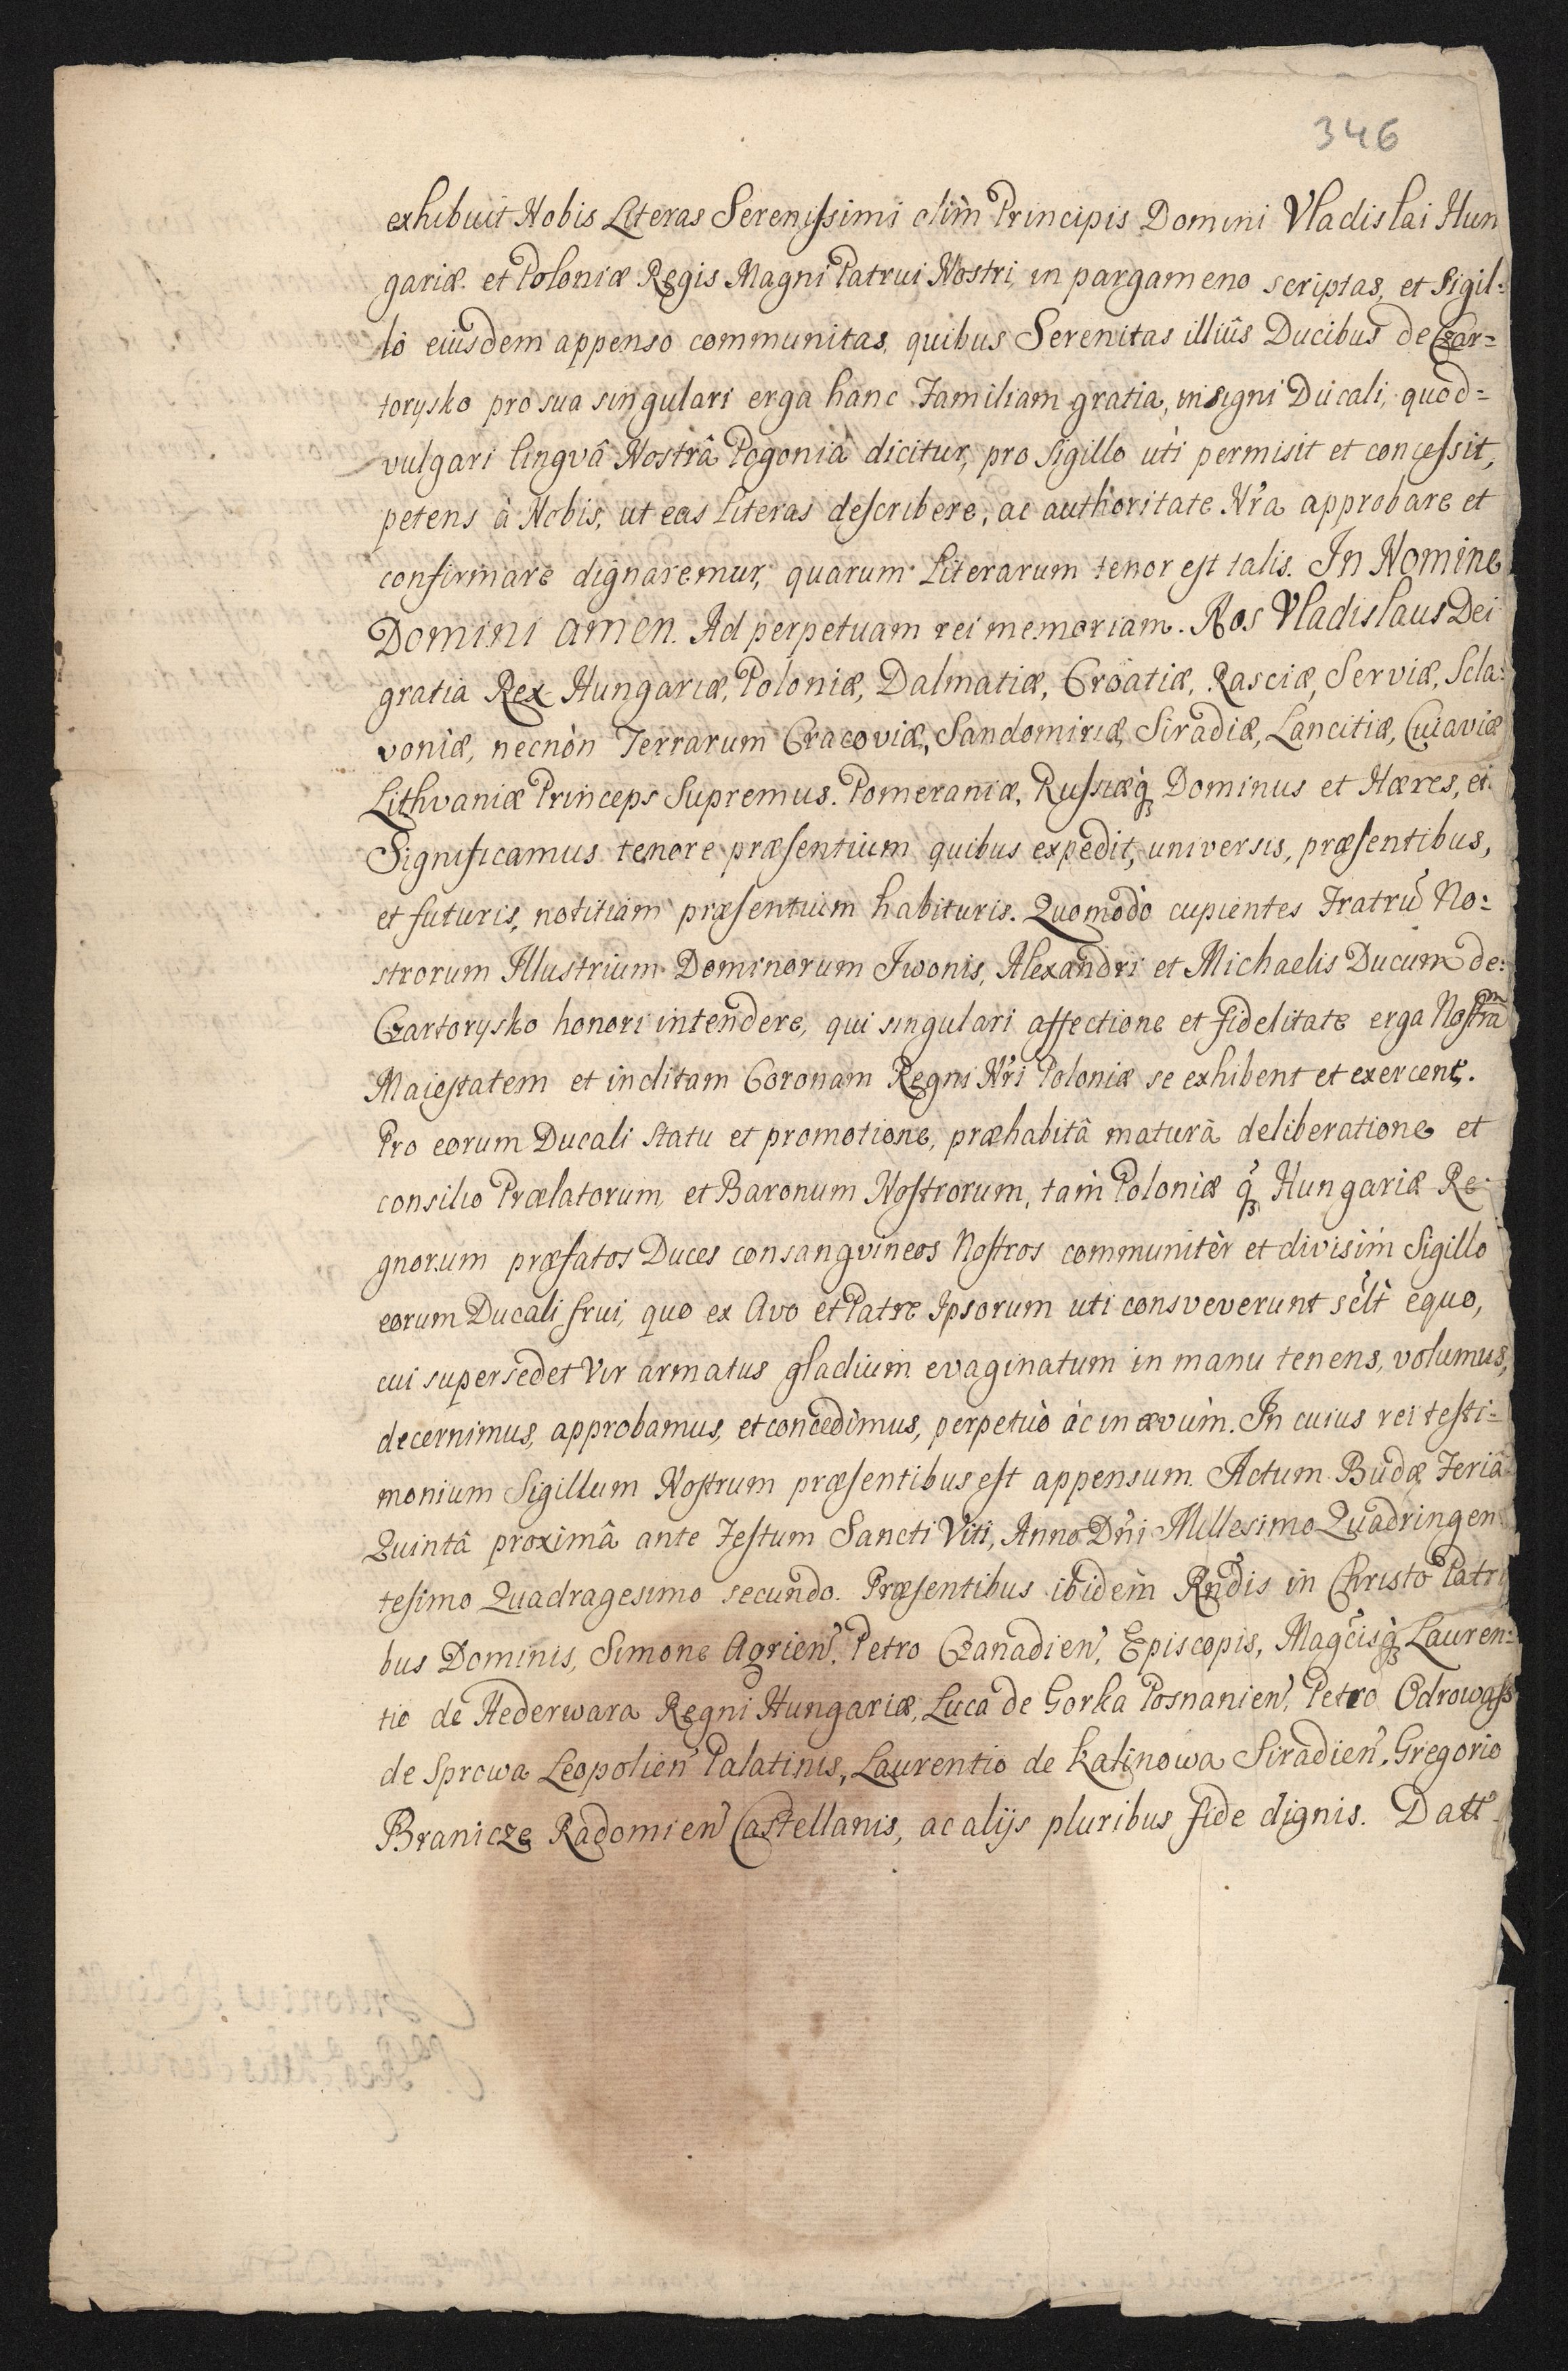 346
exhibuit Nobis Literas Serenissimi olim Principis Domini Vladislai Hun
gariæ et Poloniæ Regis Magni Patrui Nostri, in pargameno scriptas, et Sigil=
lo eiusdem appenso communitas, quibus Serenitas illiûs Ducibus de Czar=
torysko pro sua singulari erga hanc Familiam gratia, insigni Ducali, quod=
vulgari lingvâ Nostrâ Pogonia dicitur, pro Sigillo uti permisit et concessit,
petens à Nobis, ut eas Literas describere, ac authoritate Nr̃a approbare et
confirmare dignaremur, quarum Literarum tenor est talis. In Nomine
Domini amen. Ad perpetuam rei memoriam. Nos Vladislaus Dei
gratia Rex Hungariæ, Poloniæ, Dalmatiæ, Croatiæ, Rasciæ, Serviæ, Scla=
voniæ, necnòn Terrarum Cracoviæ, Sandomiriæ, Siradiæ, Lancitiæ, Cuiaviæ
Lithvaniæ Princeps Supremus. Pomeraniæ, Russiæq̀ Dominus et Hæres, et
Significamus tenore præsentium quibus expedit, universis, præsentibus,
et futuris, notitiam præsentium habituris. Quomodò cupientes Fratrũ No=
strorum Illustrium Dominorum Iwonis, Alexandri et Michaelis Ducum de=
Czartorysko honori intendere, qui singulari affectione et fidelitate erga Nostram
Maiestatem et inclitam Coronam Regni Nr̃i Poloniæ se exhibent et exercent.
Pro eorum Ducali statu et promotione, præhabitâ maturâ deliberatione et
consilio Prælatorum, et Baronum Nostrorum, tam Poloniæ q̃ Hungariæ Re=
gnorum præfatos Duces consangvineos Nostros communitèr et divisim Sigillo
eorum Ducali frui, quo ex Avo et Patre Ipsorum uti consveverunt sclt̃ equo,
cui supersedet Vir armatus gladium evaginatum in manu tenens, volumus,
decernimus, approbamus, et concedimus, perpetuò ac in ævum. In cuius rei testi=
monium Sigillum Nostrum præsentibus est appensum. Actum Budæ Feriâ
Quintâ proximâ ante Festum Sancti Viti, Anno Dñi Millesimo Quadringen
tesimo Quadragesimo secundo. Præsentibus ibidem Rñdis in Christo Patri
bus Dominis, Simone Agrieñ, Petro Czanadieñ, Episcopis, Magc̃isq̀ Lauren=
tio de Hederwara Regni Hungariæ, Luca de Gorka Posnanieñ, Petro Odrowąss
de Sprowa Leopolieñ Palatinis, Laurentio de Kalinowa Siradieñ, Gregorio
Branicze Radomieñ Castellanis, ac alijs pluribus fide dignis. Datt